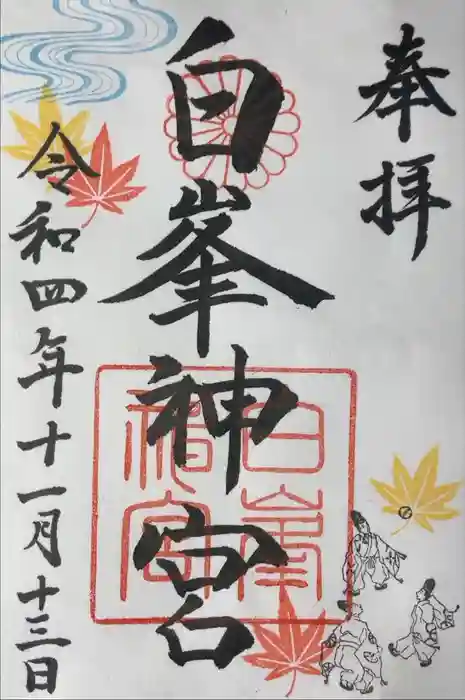 奉拝
白峯神宮
白峯
神宮
令和四年十一月十三日